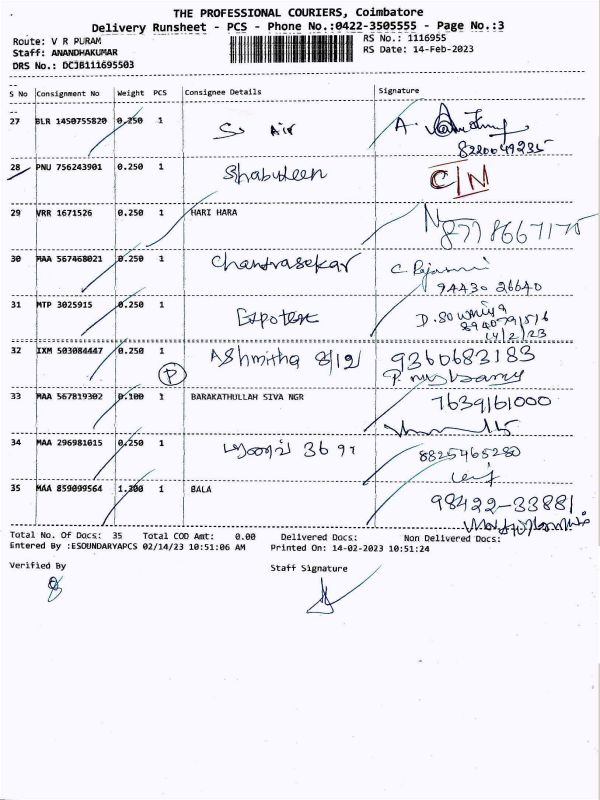 THE PROFESSIONAL COURIERS, Coimbatore
Delivery Runsheet - PCS - Phone No.:0422-3505555 - Page No.:3
Route: V R PURAM
RS No.: 1116955
Staff: ANANDHAKUMAR
RS Date: 14-Feb-2023
DRS No.: DCJB111695503
S No Consignment No Weight PCS Consignee Details Signature
27 BLR 1450755820 0.250 1 Air A.
8220049235
28 PNU 756243901 0.250 1 Shabudeen C/N
29 VRR 1671526 0.250 1 HARI HARA
8778667175
30 MAA 567468021 0.250 1 Chandrasekar C Rajamni
94430 26640
31 MTP 3025915 0.250 1 D. Sowmiya
8940791516
14/2/23
32 IXM 503084447 0.250 1 Ashmitha 8/12 9360683183
P
33 MAA 567819302 0.100 1 BARAKATHULLAH SIVA NGR 7639161000
34 MAA 296981015 0.250 1 8825465280
35 MAA 859099564 1.300 1 BALA
98422-33881
Total No. Of Docs: 35 Total COD Amt: 0.00 Delivered Docs: Non Delivered Docs:
Entered By :ESOUNDARYAPCS 02/14/23 10:51:06 AM Printed On: 14-02-2023 10:51:24
Verified By
Staff Signature